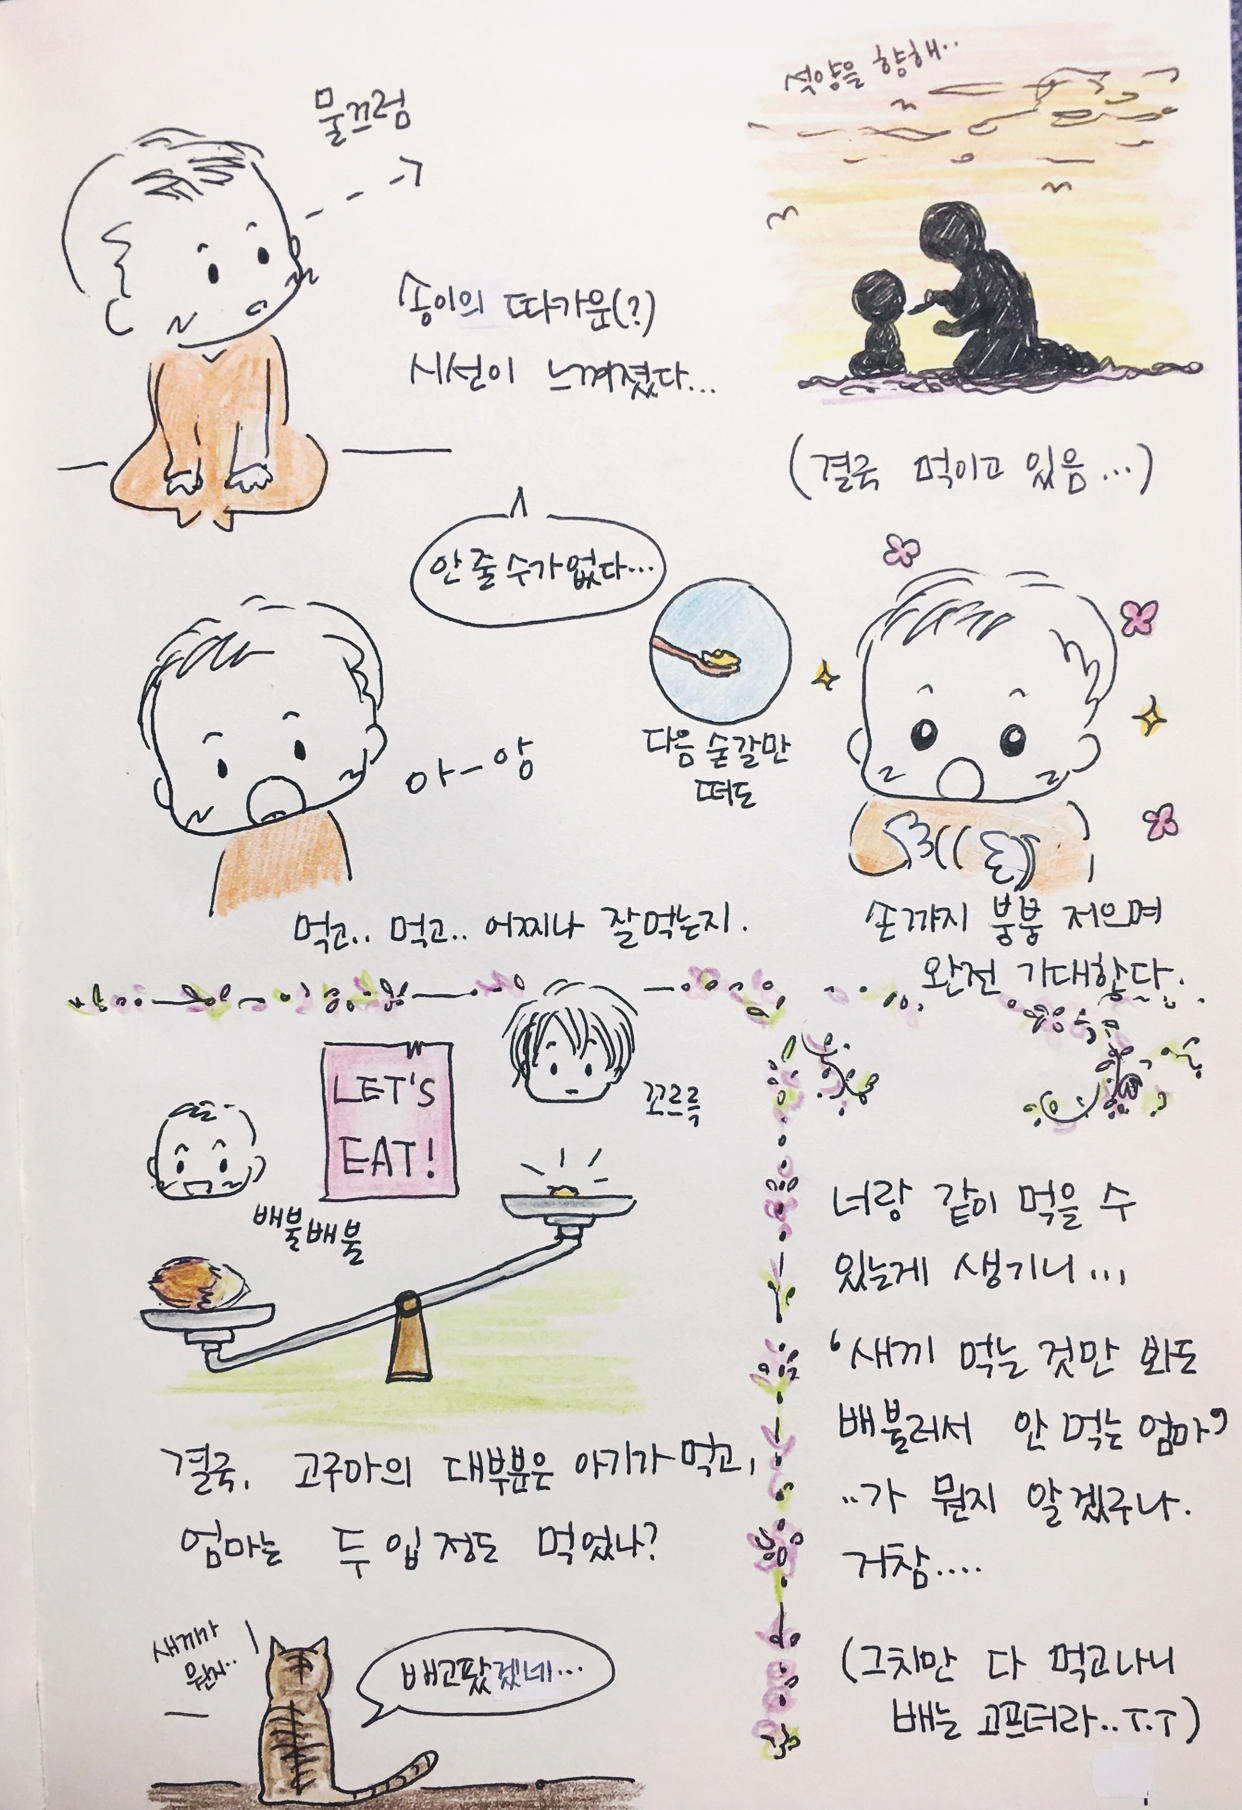 물끄럼
송이의 따가운(?)
시선이 느껴졌다...
석양을 향해..
(결국 먹이고 있음...)
안 줄 수가 없다...
아-앙
먹고.. 먹고.. 어찌나 잘먹는지.
다음 숟갈만
떠도
손까지 붕붕 저으며
완전 기대한다.
LET'S
EAT!
배불배불
꼬르륵
결국, 고구마의 대부분은 아기가 먹고,
엄마는 두 입 정도 먹었나?
새끼가
뭔지..
배고팠겠네...
너랑 같이 먹을 수
있는게 생기니...
'새끼 먹는 것만 봐도
배불러서 안 먹는 엄마'
..가 뭔지 알겠구나.
거참....
(그치만 다 먹고나니
배는 고프더라..T.T)